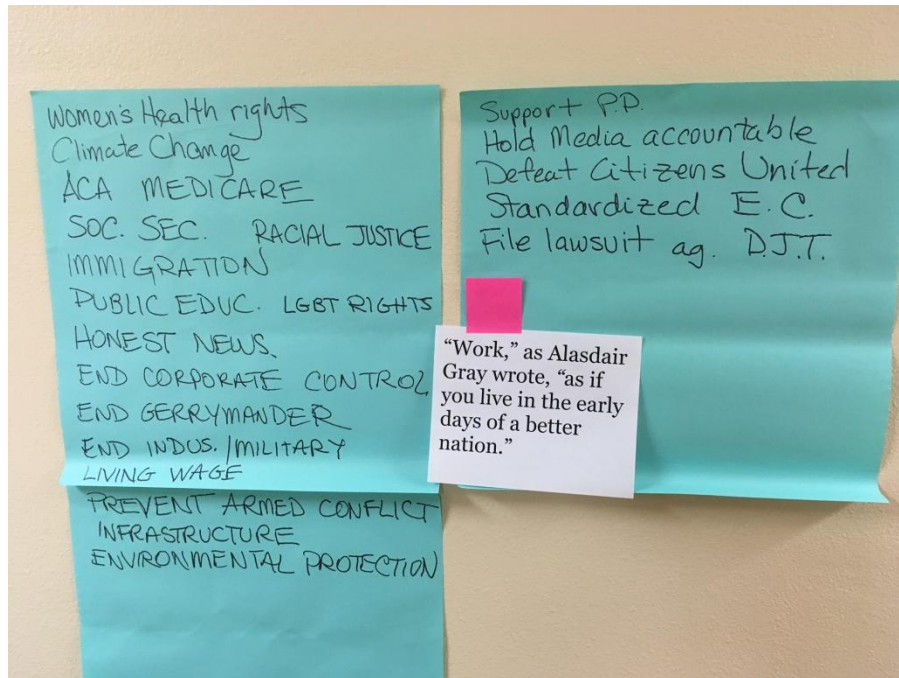 Women's Health rights
Climate Change
ACA MEDICARE
SOC. SEC. RACIAL JUSTICE
IMMIGRATION
PUBLIC EDUC. LGBT RIGHTS
HONEST NEWS.
END CORPORATE CONTROL
END GERRYMANDER
END INDUS./MILITARY
LIVING WAGE
PREVENT ARMED CONFLICT
INFRASTRUCTURE
ENVIRONMENTAL PROTECTION
Support P.P.
Hold Media accountable
Defeat Citizens United
Standardized E.C.
File lawsuit ag. D.J.T.
“Work,” as Alasdair
Gray wrote, “as if
you live in the early
days of a better
nation.”